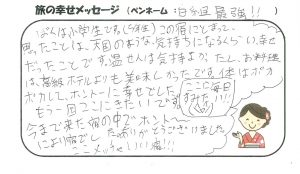 旅の幸せメッセージ (ペンネーム 泊組最強!! )
ぼくは小学生です。(5年生)この宿にとまって
思ったことは、天国のような気持ちになるくらい、幸せ
だったことです。温せんは気持すぎるよ。たし、お料理
は、高級ホテルよりも美味しかったです。体はポカ
ポカして、ホントーに幸せでした。
ここに毎日すみたい!!
もう一回ここにきたいです
今まで来た宿の中でホントー
により宿でした。ありがとうございました
ここメッチャいい宿!!